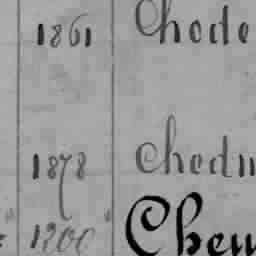 1861 Chode
1878 Chedn
1200 Chew